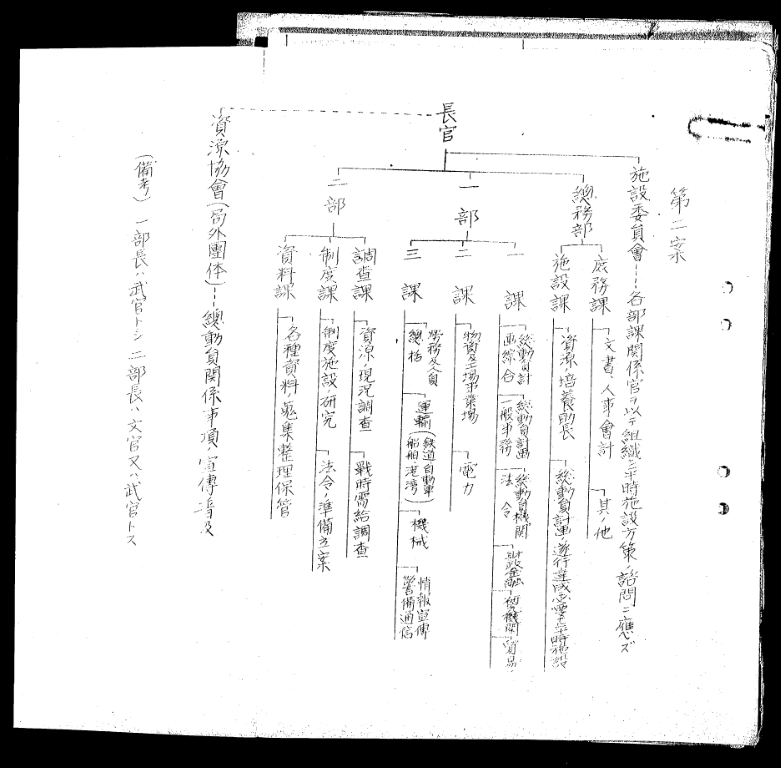 第二案
長官
施設委員會---各部課関係官ヲ以テ組織シ平時施設方策ノ諮問ニ應ズ
總務部
庶務課
文書、人事會計
其ノ他
施設課
資源培養助長
總動員計畫ノ遂行達成ニ必要ナル平時施設
一部
一課
総動員計画綜合
総動員計畫一般事務
総動員機関法令
財政金融
貿易
二課
物資及工場事業場
電力
三課
労務及人員總括
運輸(鉄道自動車船舶港湾)
機械
情報宣傳警備通信
二部
調査課
資源ノ現況調査
戰時需給調査
制度課
制度施設ノ研究
法令ノ準備立案
資料課
各種資料ノ蒐集整理保管
資源協會(局外團体)---總動員関係事項ノ宣傳普及
(備考) 一部長ハ武官トシ二部長ハ文官又ハ武官トス